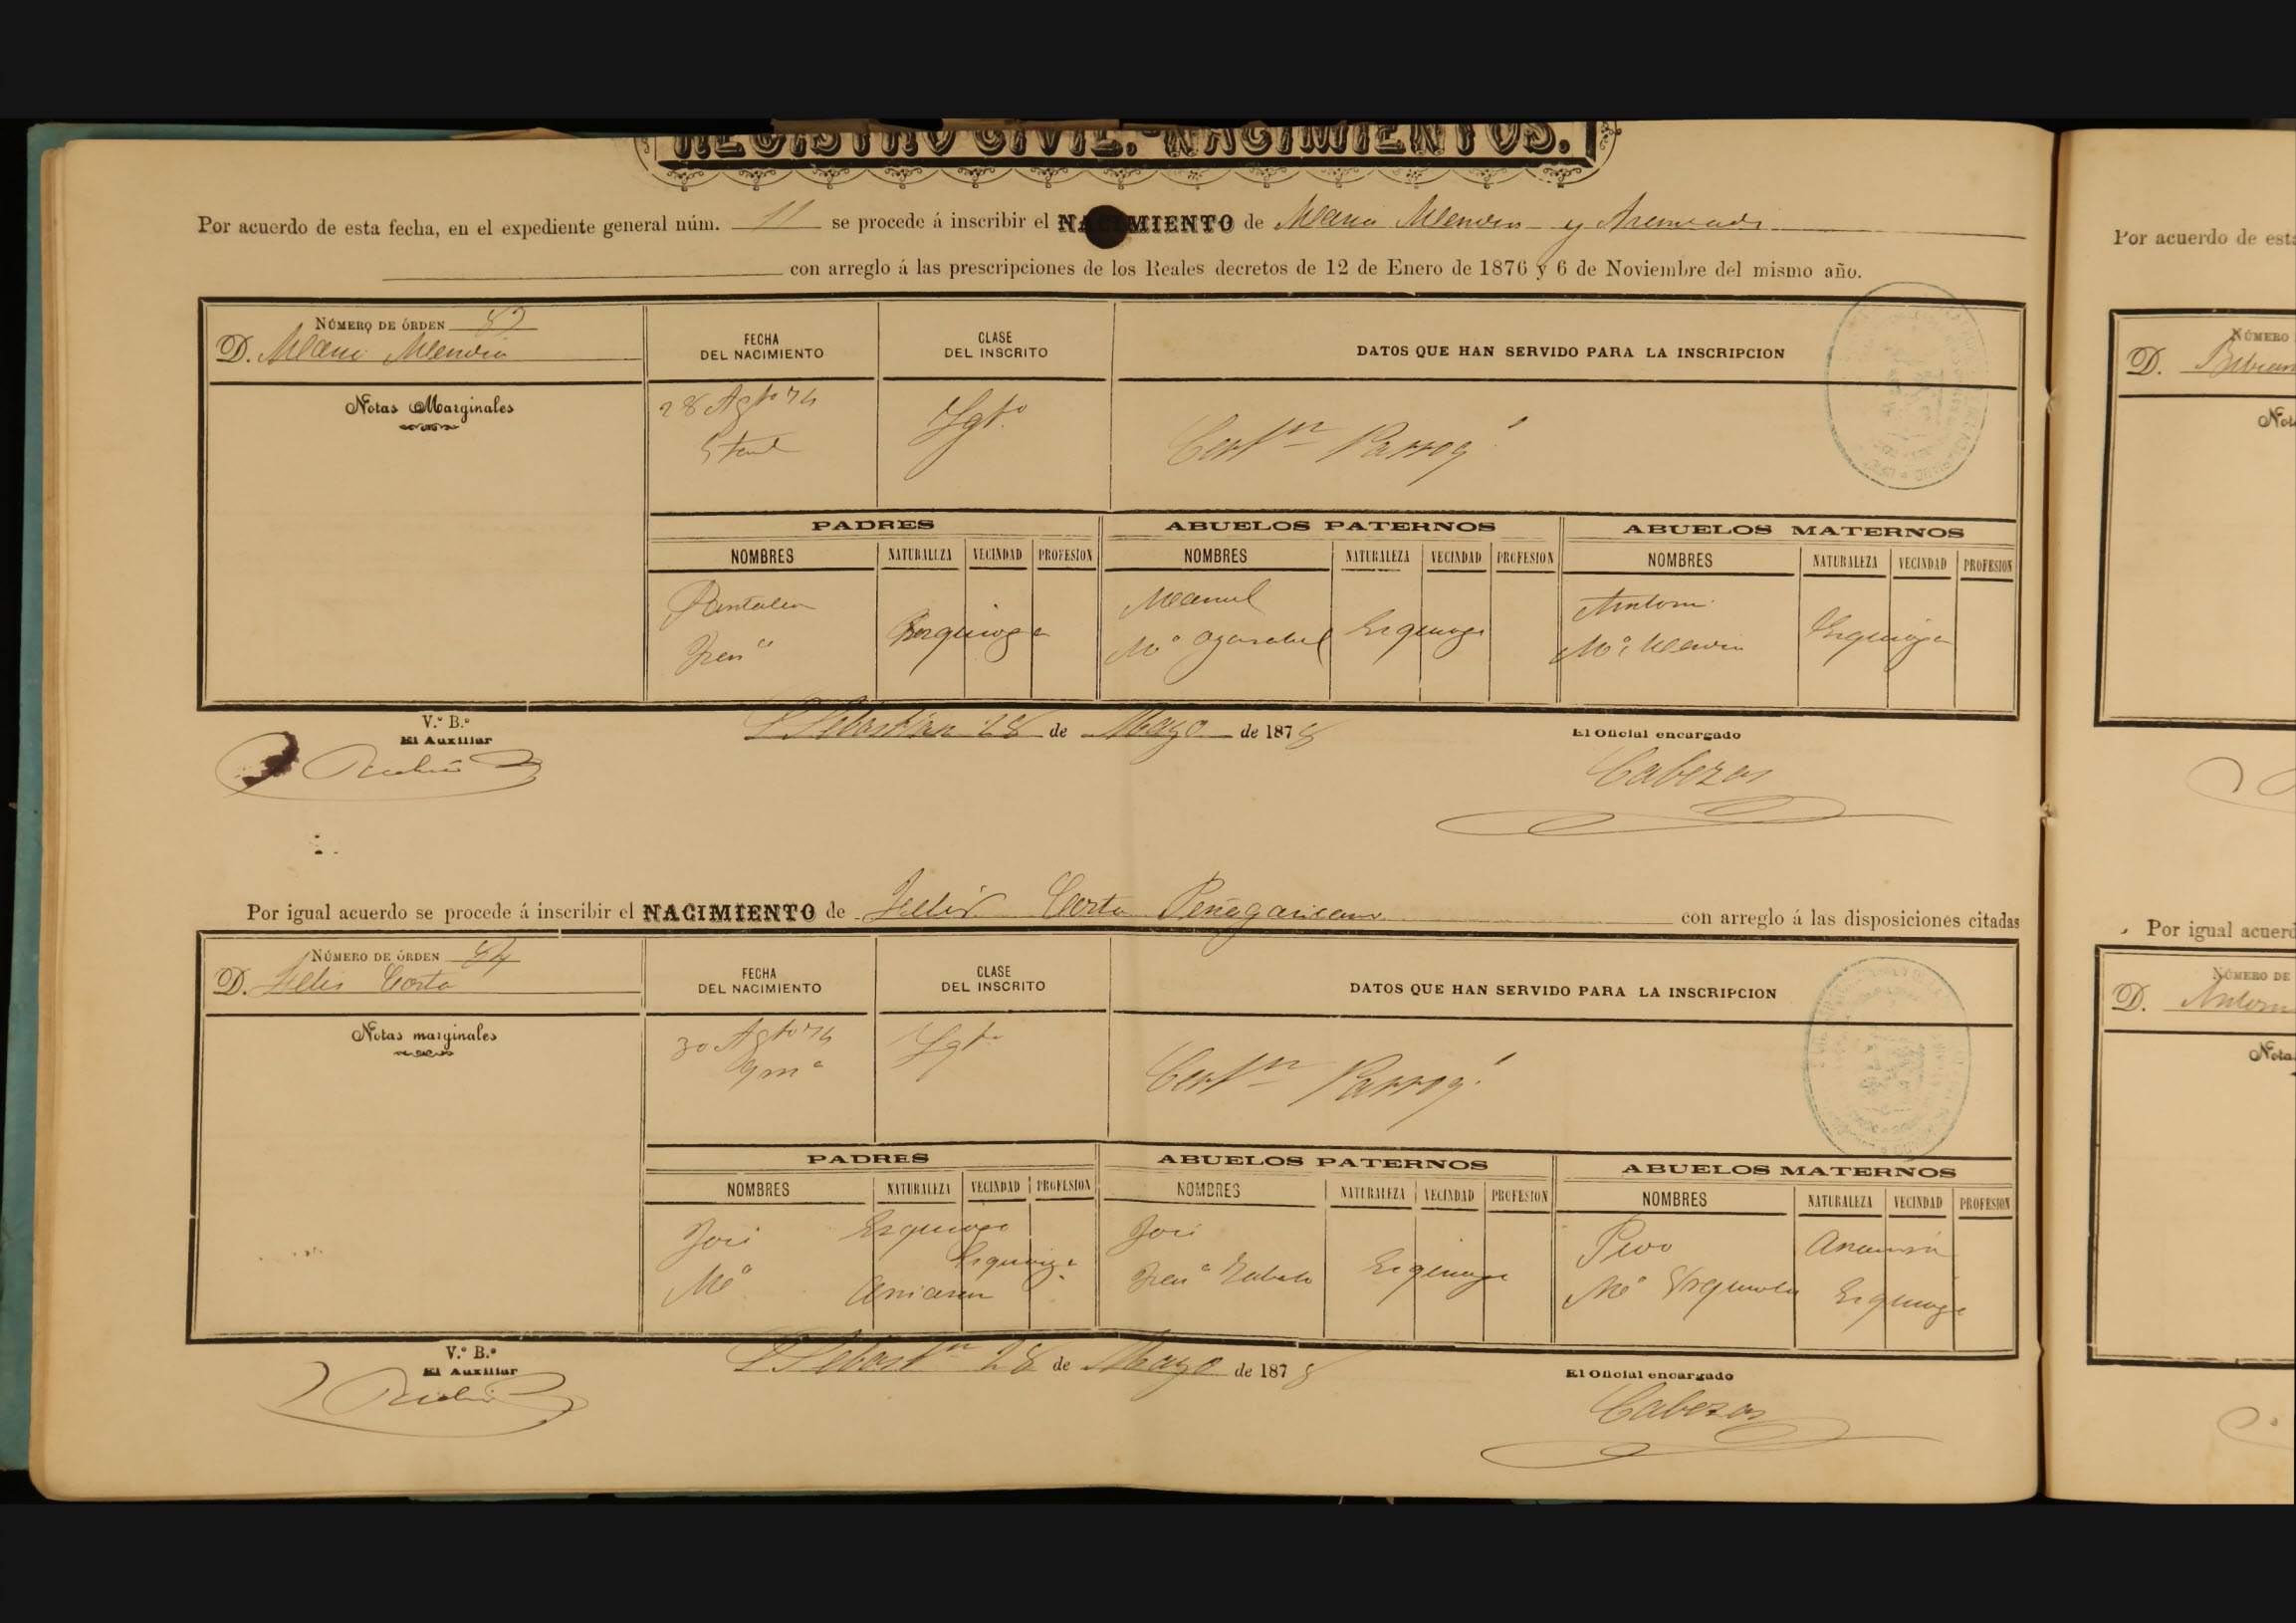 REGISTRO CIVIL.-NACIMIENTOS.
Por acuerdo de esta fecha, en el expediente general núm. 11 se procede á inscribir el NACIMIENTO de Maria Mendia y
con arreglo á las prescripciones de los Reales decretos de 12 de Enero de 1876 y 6 de Noviembre del mismo año.
NÚMERO DE ÓRDEN
D. Maria Mendia
Notas Marginales
FECHA DEL NACIMIENTO
CLASE DEL INSCRITO
DATOS QUE HAN SERVIDO PARA LA INSCRIPCION
28 Agto 74
5 tard
Lgto
Certn Parroql
PADRES
ABUELOS PATERNOS
ABUELOS MATERNOS
NOMBRES NATURALEZA VECINDAD PROFESION NOMBRES NATURALEZA VECINDAD PROFESION NOMBRES NATURALEZA VECINDAD PROFESION
Pantaleon Manuel Antonio
Ezquioga Ezquioga Ezquioga
Franca Ma Ma Mendia
V.º B.º
El Auxiliar
S Sebastian 28 de Mayo de 1878
El Oficial encargado
Cabezas
Por igual acuerdo se procede á inscribir el NACIMIENTO de Felix Corta Peñagaricano con arreglo á las disposiciones citadas
NÚMERO DE ÓRDEN 84
D. Felix Corta
Notas marginales
FECHA DEL NACIMIENTO
CLASE DEL INSCRITO
DATOS QUE HAN SERVIDO PARA LA INSCRIPCION
30 Agto 74
9 ma
Lgto
Certn Parroql
PADRES
ABUELOS PATERNOS
ABUELOS MATERNOS
NOMBRES NATURALEZA VECINDAD PROFESION NOMBRES NATURALEZA VECINDAD PROFESION NOMBRES NATURALEZA VECINDAD PROFESION
José Ezquioga José Pedro
Ezquioga Ezquioga
Ma Franca Zabalo Ma Ezquioga
V.º B.º
El Auxiliar
S Sebastn 28 de Mayo de 1878
El Oficial encargado
Cabezas
Por acuerdo de esta
NÚMERO
D.
Por igual acuerd
NÚMERO DE
D. Antoni
Nota